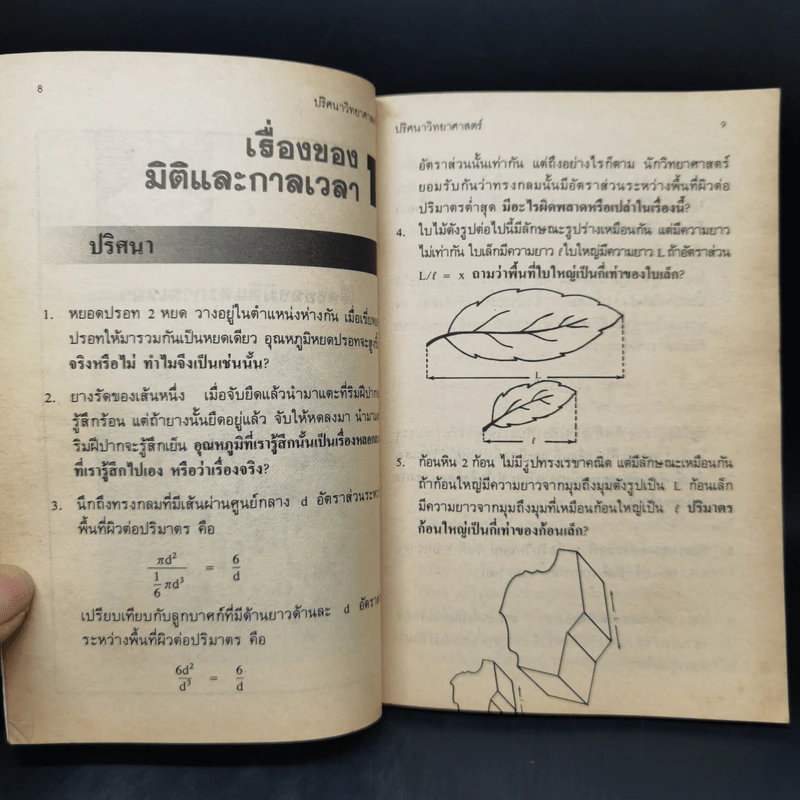 8
ปริศนาวิทยาศาส
เรื่องของ
มิติและกาลเวลา 1
ปริศนา
1. หยอดปรอท 2 หยด วางอยู่ในตำแหน่งห่างกัน เมื่อเขี่ยหยด
ปรอทให้มารวมกันเป็นหยดเดียว อุณหภูมิหยดปรอทจะสูงขึ้น
จริงหรือไม่ ทำไมจึงเป็นเช่นนั้น?
2. ยางรัดของเส้นหนึ่ง เมื่อจับยืดแล้วนำมาแตะที่ริมฝีปากจะ
รู้สึกร้อน แต่ถ้ายางนั้นยืดอยู่แล้ว จับให้หดลงมา นำมา
ริมฝีปากจะรู้สึกเย็น อุณหภูมิที่เรารู้สึกนั้นเป็นเรื่องหลอก
ที่เรารู้สึกไปเอง หรือว่าเรื่องจริง?
3. นึกถึงทรงกลมที่มีเส้นผ่านศูนย์กลาง d อัตราส่วนระหว
พื้นที่ผิวต่อปริมาตร คือ
πd² / (1/6 πd³) = 6/d
เปรียบเทียบกับลูกบาศก์ที่มีด้านยาวด้านละ d อัตรา
ระหว่างพื้นที่ผิวต่อปริมาตร คือ
6d²/d³ = 6/d
ปริศนาวิทยาศาสตร์
9
อัตราส่วนนั้นเท่ากัน แต่ถึงอย่างไรก็ตาม นักวิทยาศาสตร์
ยอมรับกันว่าทรงกลมนั้นมีอัตราส่วนระหว่างพื้นที่ผิวต่อ
ปริมาตรต่ำสุด มีอะไรผิดพลาดหรือเปล่าในเรื่องนี้?
4. ใบไม้ดังรูปต่อไปนี้มีลักษณะรูปร่างเหมือนกัน แต่มีความยาว
ไม่เท่ากัน ใบเล็กมีความยาว ℓ ใบใหญ่มีความยาว L ถ้าอัตราส่วน
L/ℓ = x ถามว่าพื้นที่ใบใหญ่เป็นกี่เท่าของใบเล็ก?
L
ℓ
5. ก้อนหิน 2 ก้อน ไม่มีรูปทรงเรขาคณิต แต่มีลักษณะเหมือนกัน
ถ้าก้อนใหญ่มีความยาวจากมุมถึงมุมดังรูปเป็น L ก้อนเล็ก
มีความยาวจากมุมถึงมุมที่เหมือนก้อนใหญ่เป็น ℓ ปริมาตร
ก้อนใหญ่เป็นกี่เท่าของก้อนเล็ก?